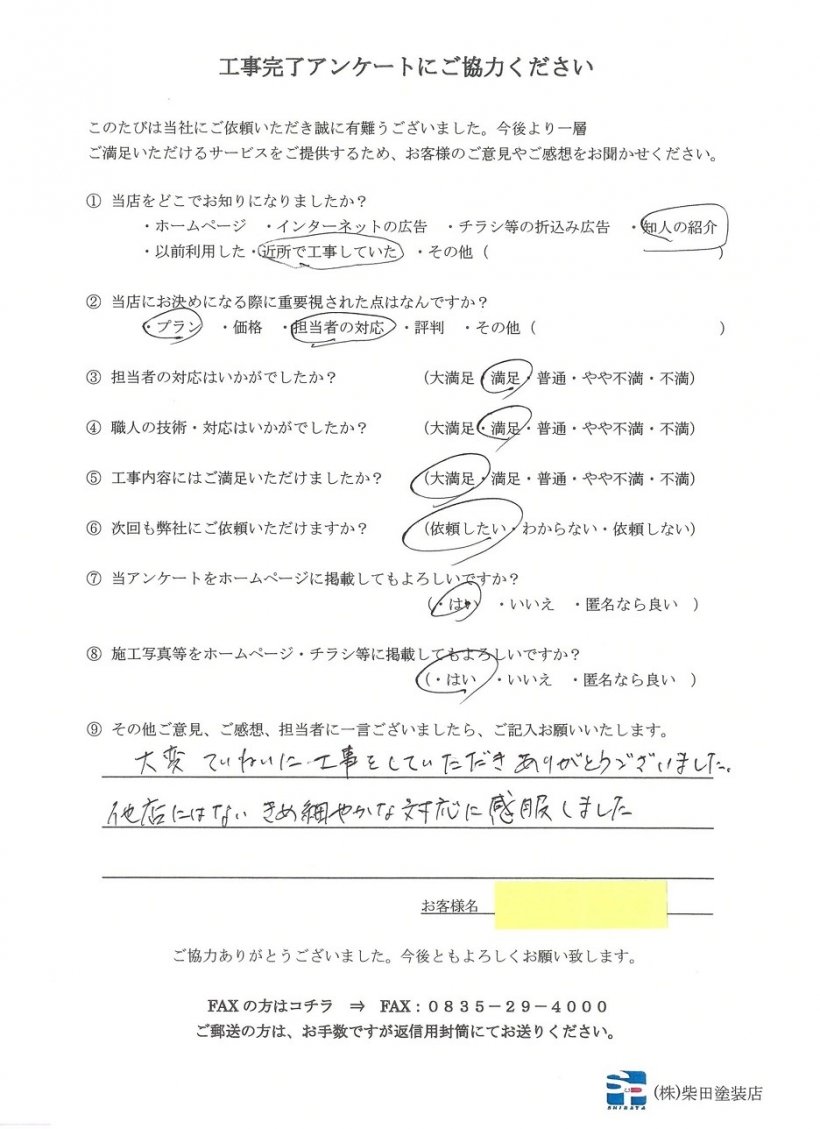 工事完了アンケートにご協力ください
このたびは当社にご依頼いただき誠に有難うございました。今後より一層
ご満足いただけるサービスをご提供するため、お客様のご意見やご感想をお聞かせください。
① 当店をどこでお知りになりましたか？
・ホームページ ・インターネットの広告 ・チラシ等の折込み広告 ・知人の紹介
・以前利用した・近所で工事していた ・その他（ ）
② 当店にお決めになる際に重要視された点はなんですか？
・プラン ・価格 ・担当者の対応 ・評判 ・その他（ ）
③ 担当者の対応はいかがでしたか？ （大満足・満足・普通・やや不満・不満）
④ 職人の技術・対応はいかがでしたか？ （大満足・満足・普通・やや不満・不満）
⑤ 工事内容にはご満足いただけましたか？ （大満足・満足・普通・やや不満・不満）
⑥ 次回も弊社にご依頼いただけますか？ （依頼したい・わからない・依頼しない）
⑦ 当アンケートをホームページに掲載してもよろしいですか？
（・はい ・いいえ ・匿名なら良い ）
⑧ 施工写真等をホームページ・チラシ等に掲載してもよろしいですか？
（・はい ・いいえ ・匿名なら良い ）
⑨ その他ご意見、ご感想、担当者に一言ございましたら、ご記入お願いいたします。
大変 ていねいに工事をしていただき ありがとうございました。
他店にはない きめ細やかな対応に感服しました
お客様名
ご協力ありがとうございました。今後ともよろしくお願い致します。
FAX の方はコチラ ⇒ FAX：０８３５－２９－４０００
ご郵送の方は、お手数ですが返信用封筒にてお送りください。
SP SHIBATA (株)柴田塗装店